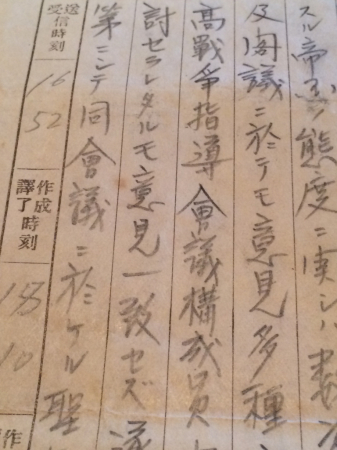 スル帝国ノ態度ニ関シハ
及閣議ニ於テモ意見多種
高戦争指導会議構成員
討セラレタルモ意見一致セズ遂
第ニシテ同会議ニ於ケル聖
送受信時刻
16
52
作成譯了時刻
18
10
作